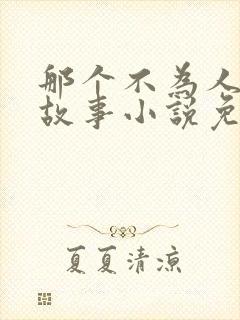 那个不为人
故事小说免
夏夏清凉